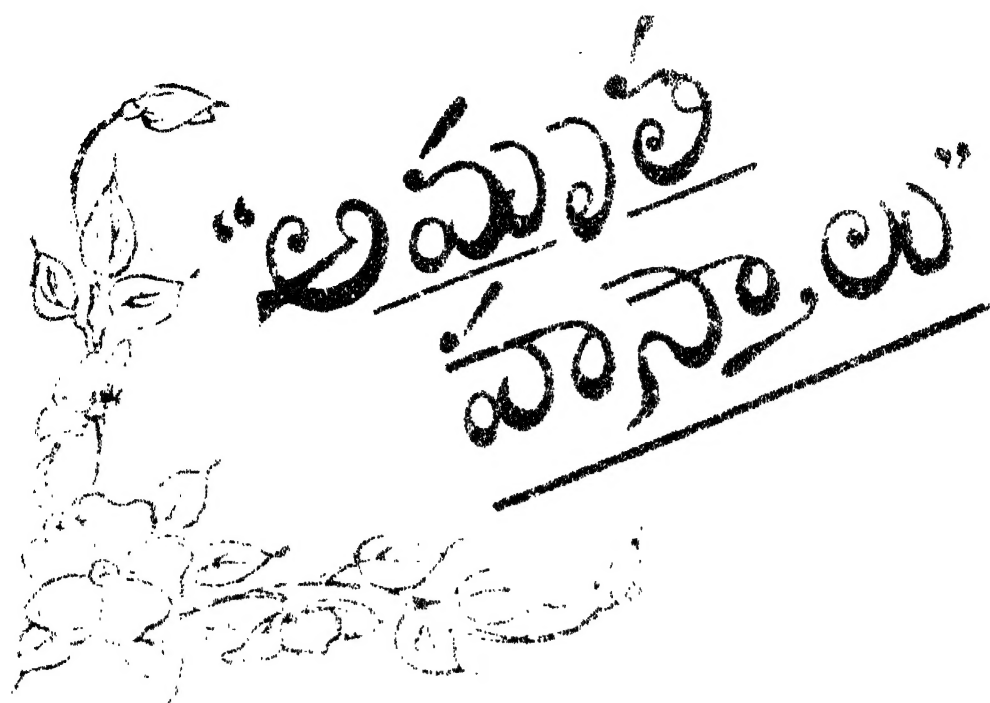 “అమృత
హాస్యాలు”